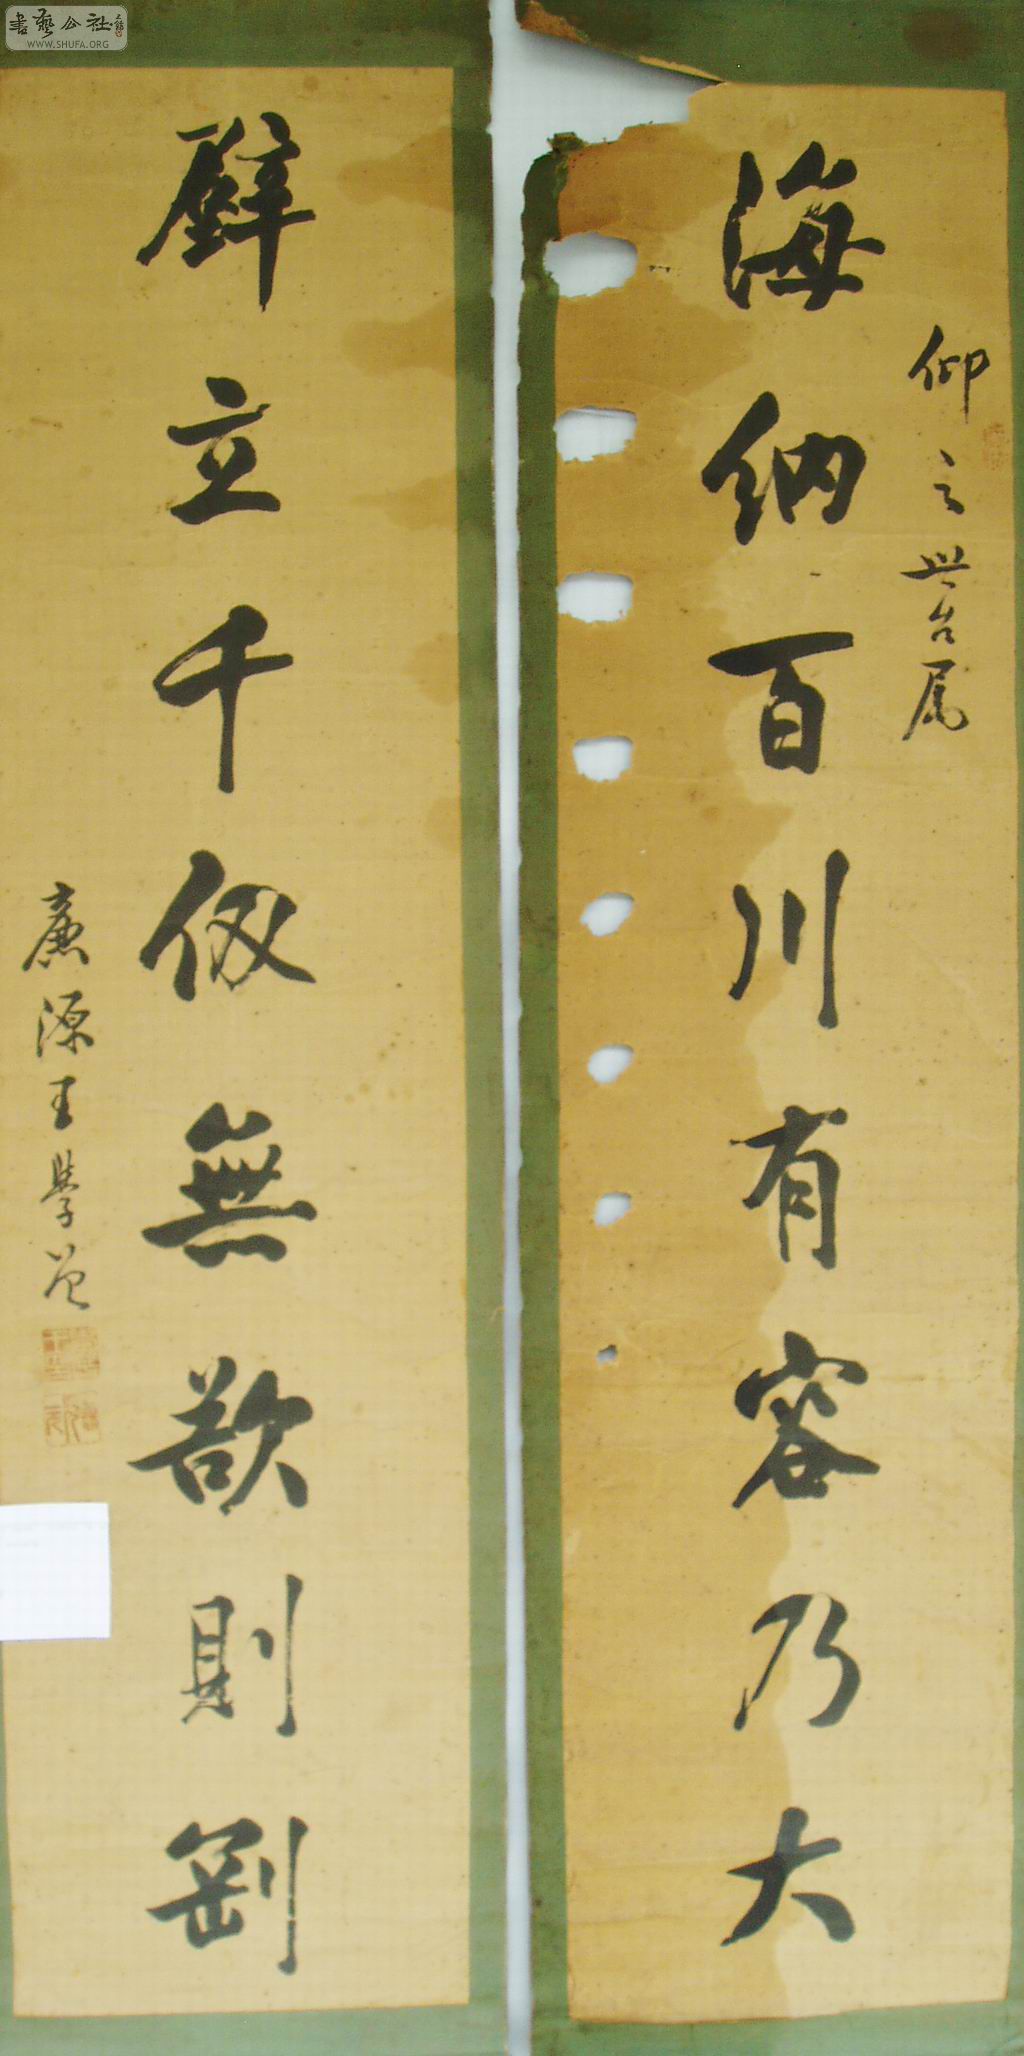 書藝公社
WWW.SHUFA.ORG
仰之世台属
海納百川有容乃大
壁立千仭無欲則剛
廉源王學